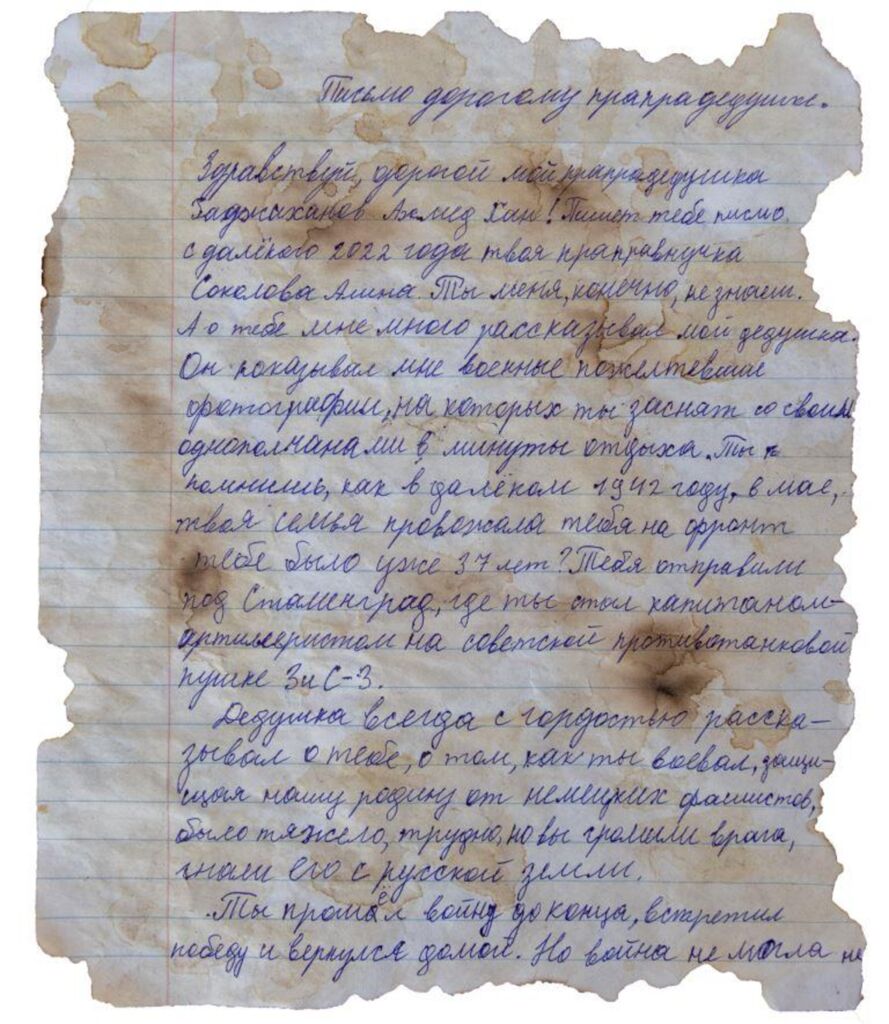 Письмо дорогому прапрадедушке.
Здравствуй, дорогой мой прапрадедушка
Гаджиханов Ахмед Хан! Пишет тебе письмо
с далёкого 2022 года твоя праправнучка
Соколова Амина. Ты меня, конечно, не знаеш.
А о тебе мне много рассказывал мой дедушка.
Он показывал мне военные пожелтевшие
фотографии, на которых ты заснят со своим
однополчанами в минуты отдыха. Ты
помнишь, как в далёком 1942 году, в мае,
твоя семья провожала тебя на фронт
тебе было уже 37 лет? Тебя отправили
под Сталенград, где ты стал капитаном-
артилеристом на советской противотанковой
пушке ЗиС-3.
Дедушка всегда с гордостью расска-
зывал о тебе, о том, как ты воевал, защи-
щая нашу родину от немецких фашистов,
было тяжело, трудно, но вы громили врага,
гнали его с русской земли.
Ты прошёл войну до конца, встретил
победу и вернулся домой. Но война не могла не